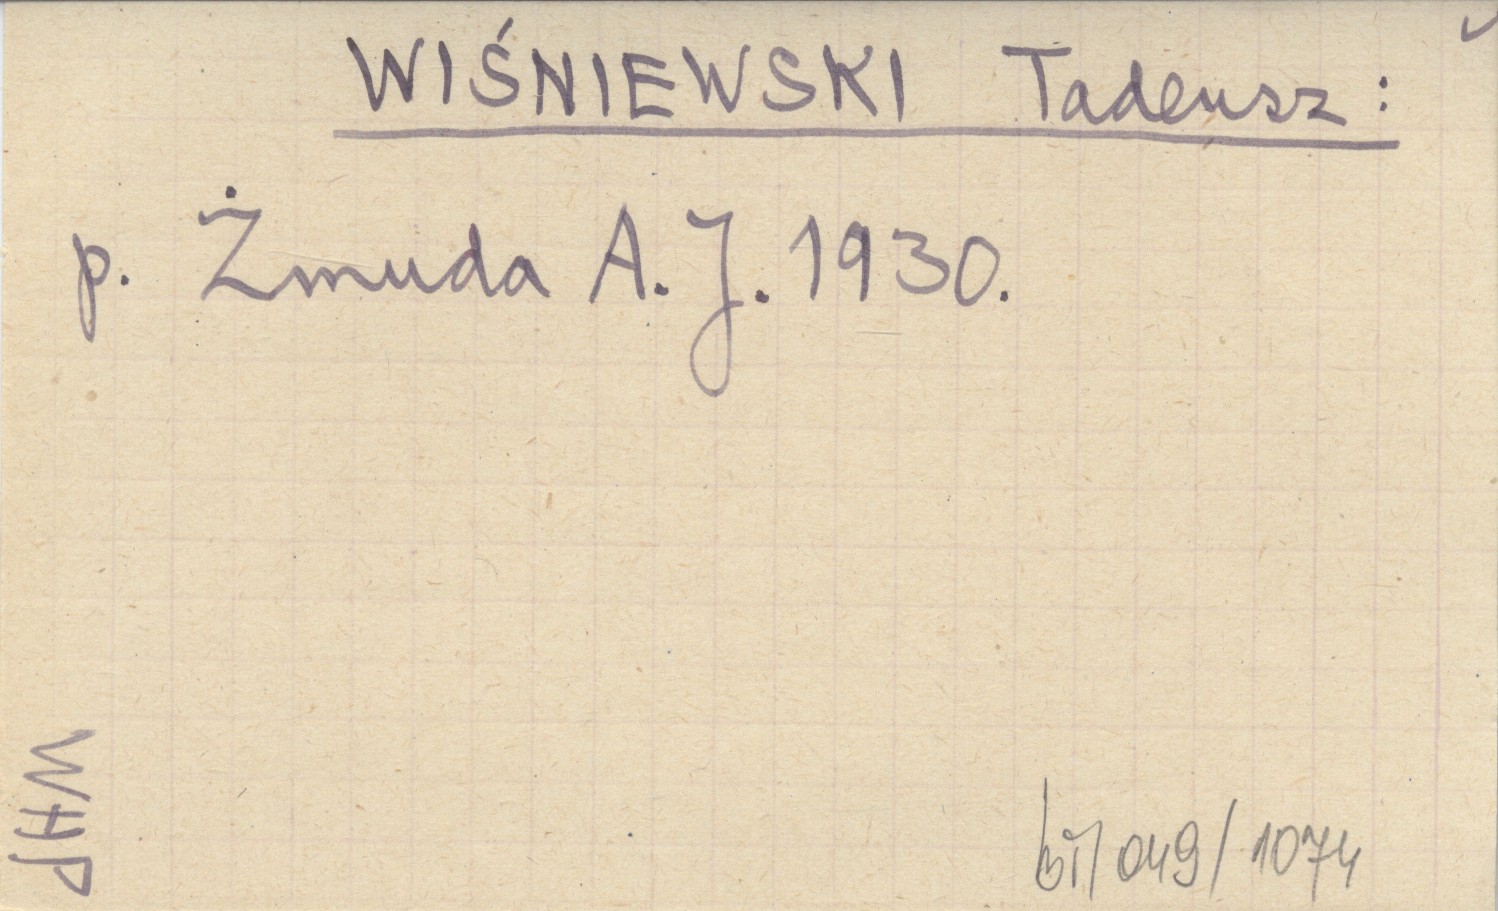 WIŚNIEWSKI Tadeusz:
p. Żmuda A. J. 1930.
WHP
bi/049/1074